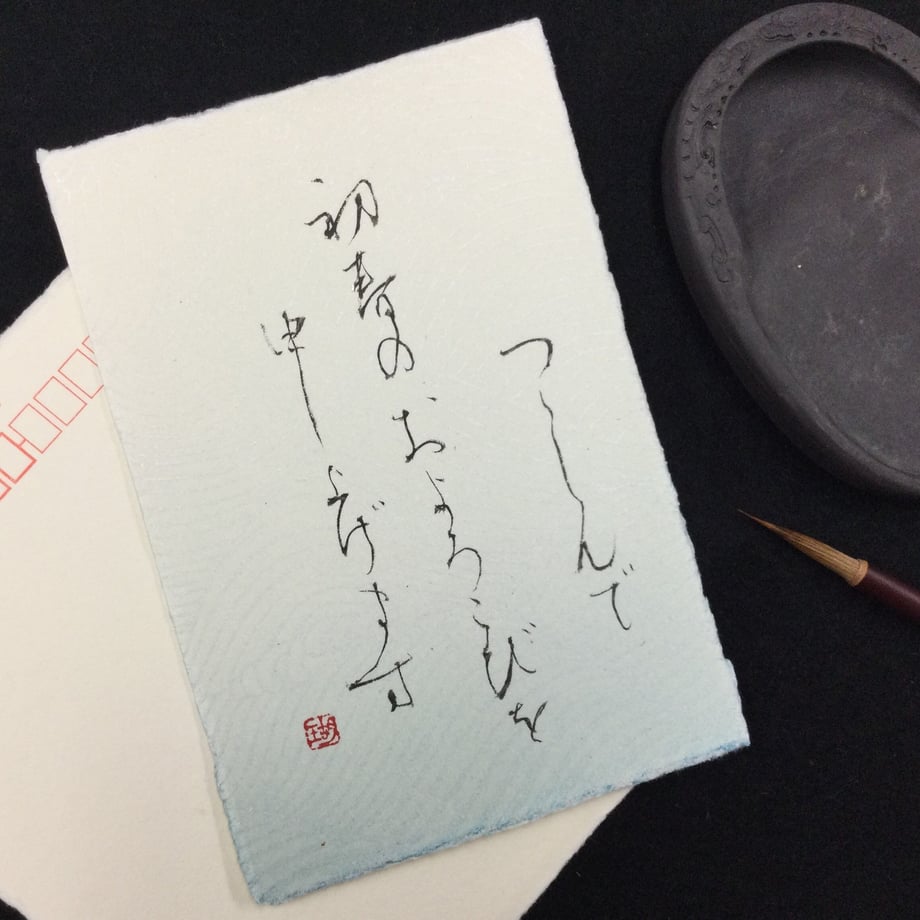 つつしんで
初春のおよろこびを
申し上げます